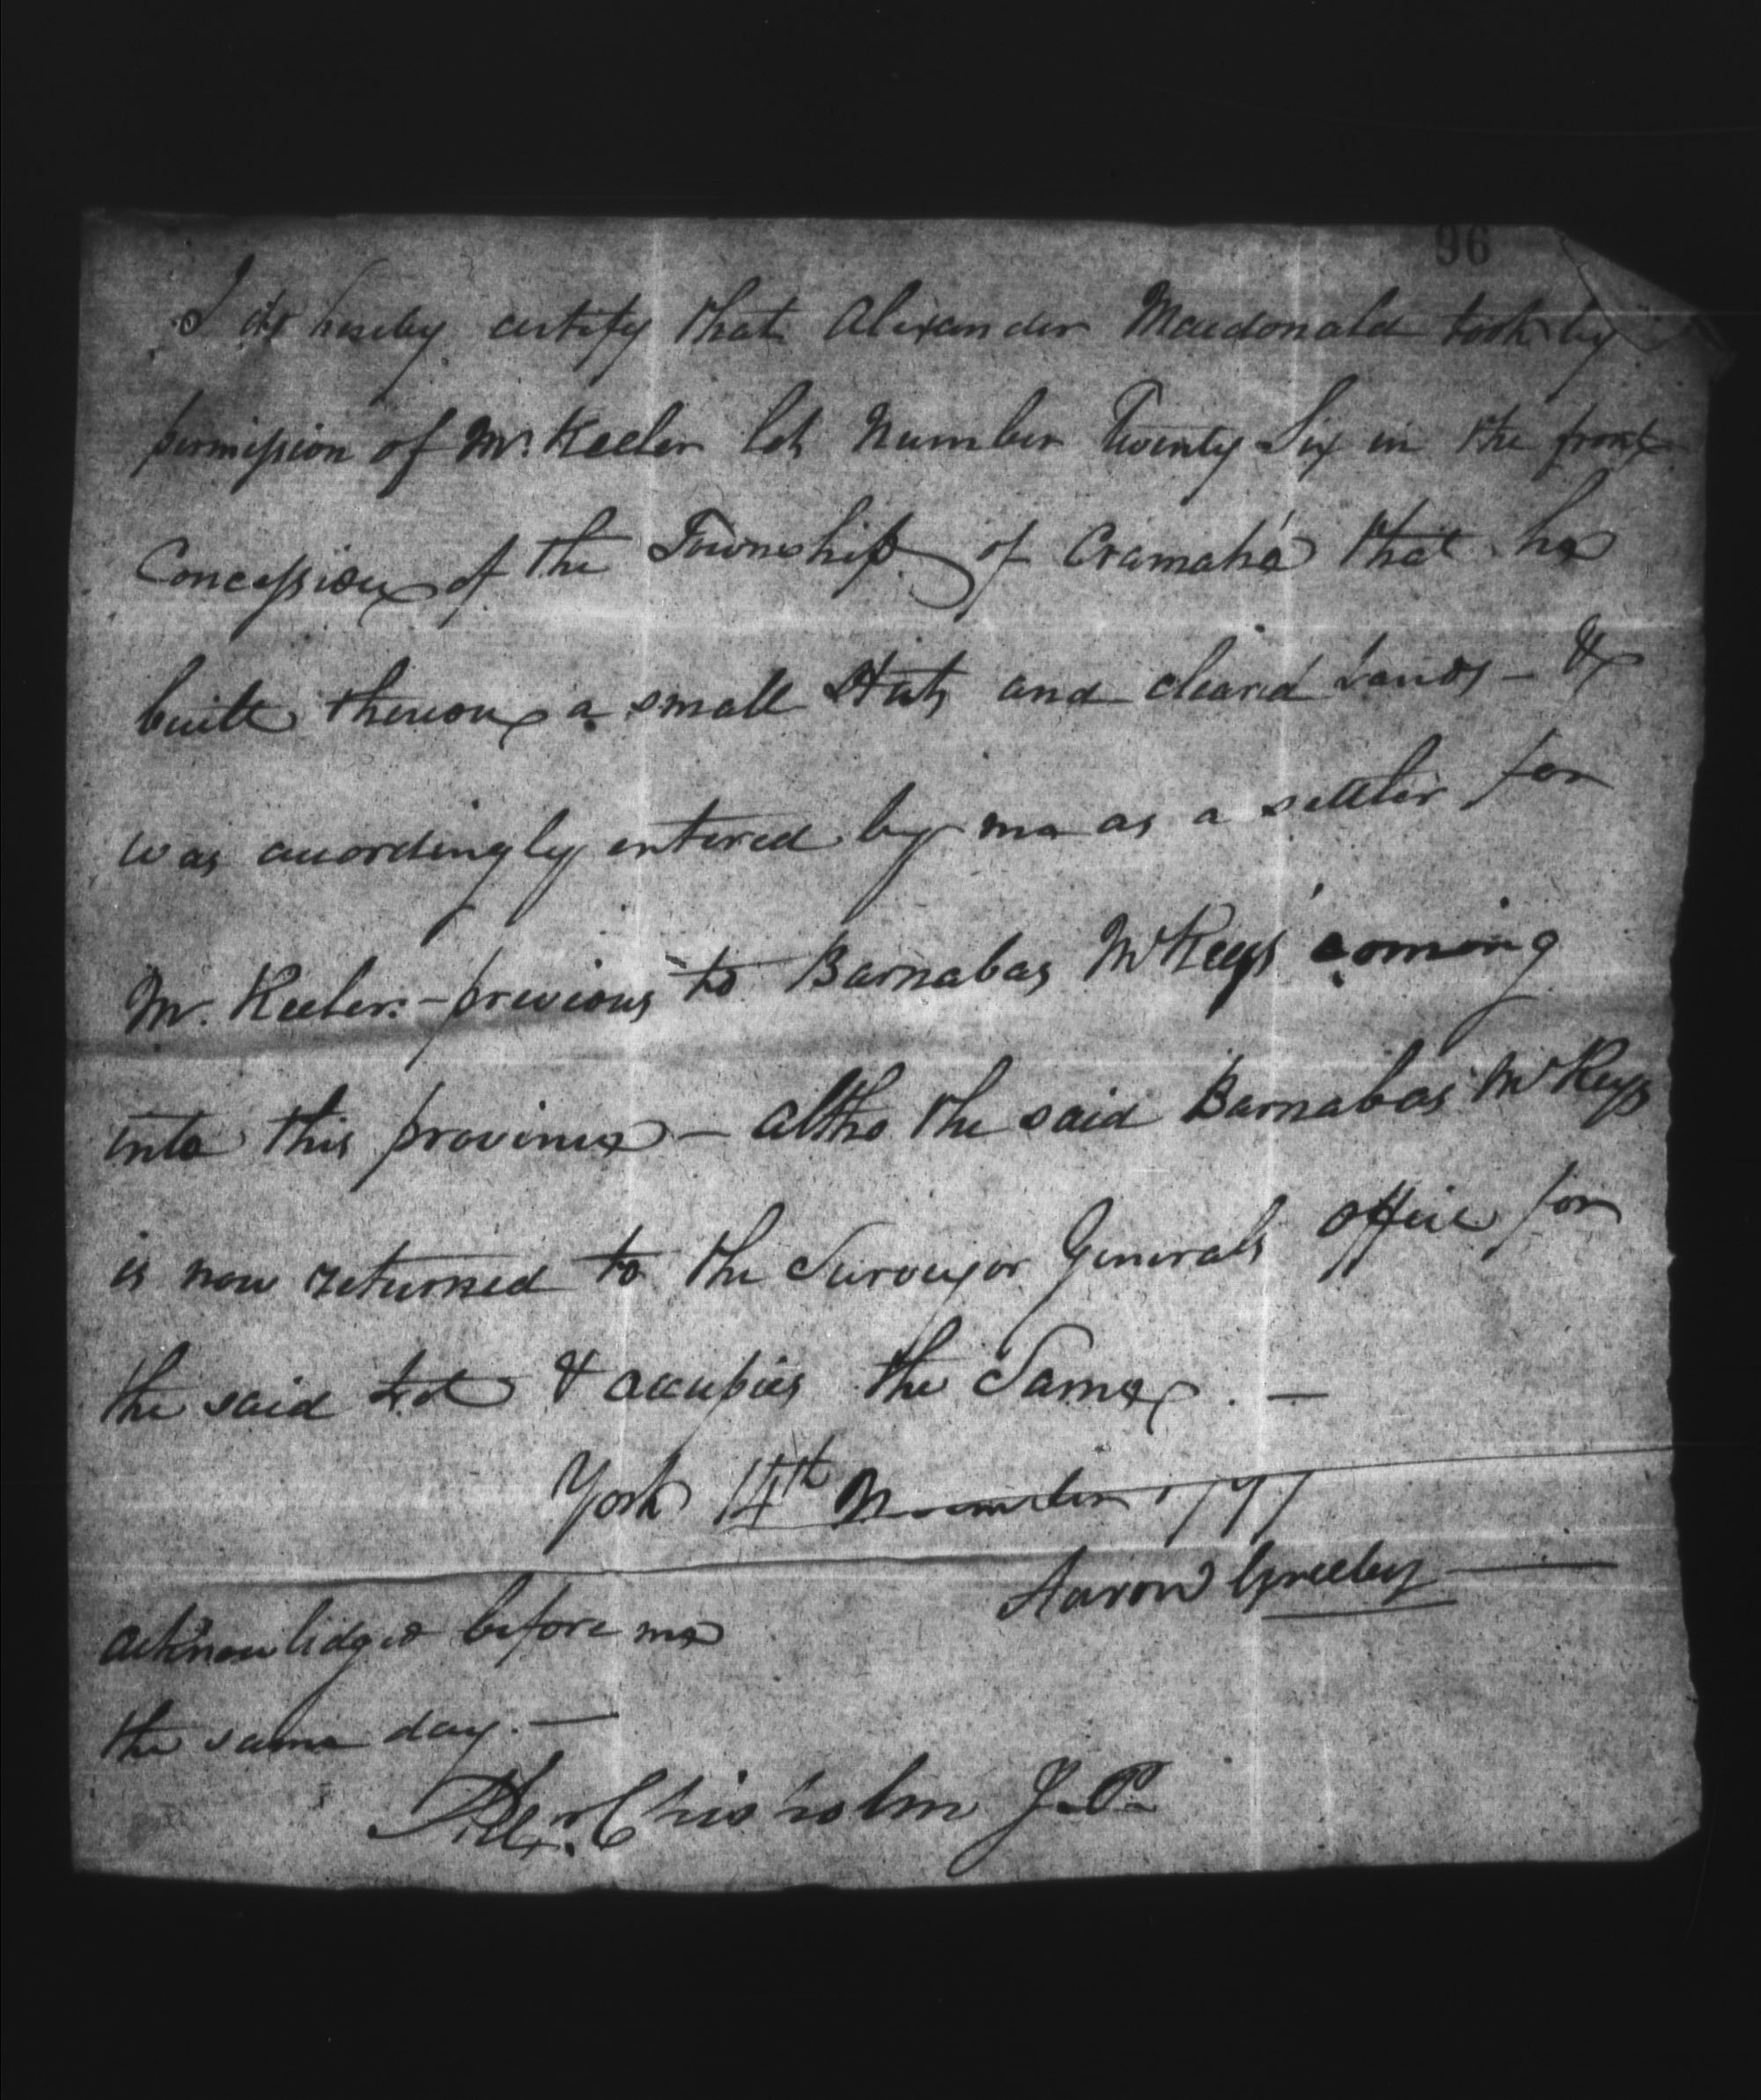 96
I do hereby certify that Alexander Macdonald took by
permission of Mr. Keeler lot Number Twenty Six in the front
Concession of the Township of Cramahé that he
built thereon a small Hut and cleared Lands - &
was accordingly entered by me as a settler for
Mr. Keeler. - previous to Barnabas McKeys' coming
into this province - altho the said Barnabas McKeys
is now returned to the Surveyor Generals office for
the said Lot & occupies the Same. -
York 14th November 1797
Aaron Greeley
acknowledged before me
the same day. -
Alexr. Chisholm J.P.